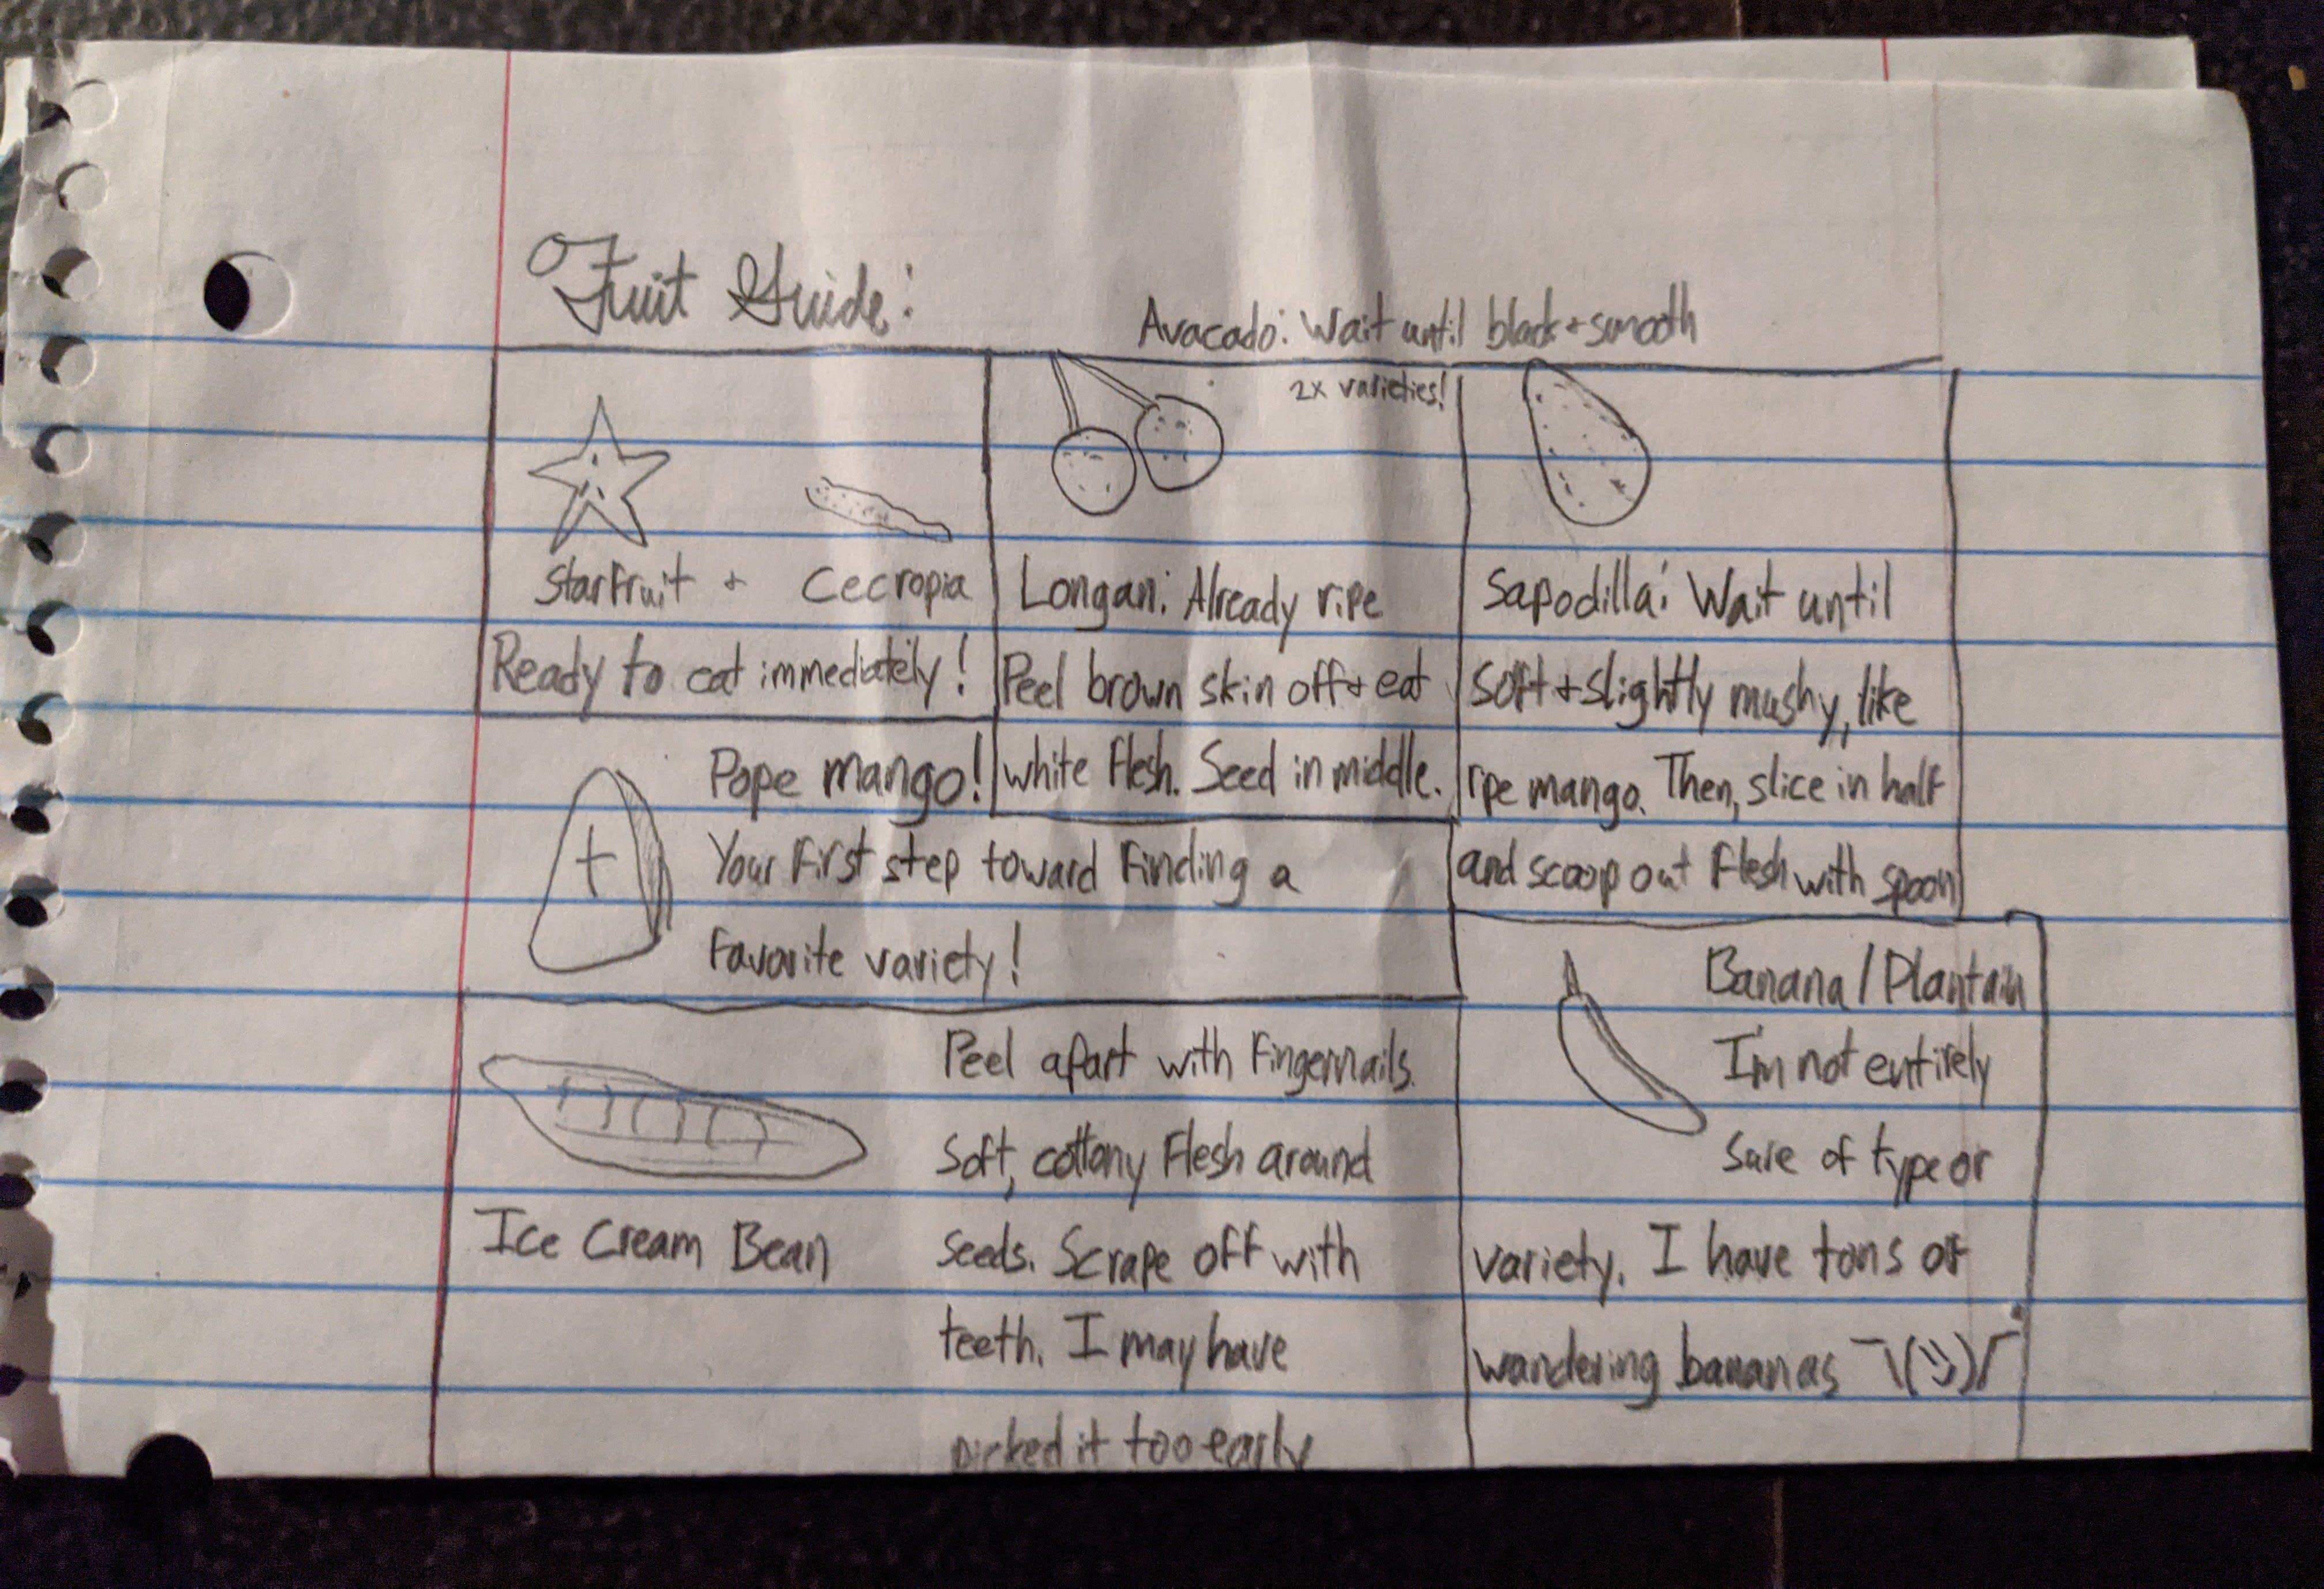 Fruit Guide:
Avacado: Wait until black + smooth
Starfruit + Cecropia
Ready to eat immediately!
2x varieties!
Longan: Already ripe
Peel brown skin off + eat
white flesh. Seed in middle.
Sapodilla: Wait until
soft + slightly mushy, like
ripe mango. Then, slice in half
and scoop out flesh with spoon
Pope mango!
Your first step toward finding a
favorite variety!
Ice Cream Bean
Peel apart with fingernails.
Soft, cottony flesh around
seeds. Scrape off with
teeth. I may have
picked it too early
Banana / Plantain
I'm not entirely
sure of type or
variety. I have tons of
wandering bananas ¯\(ツ)/¯